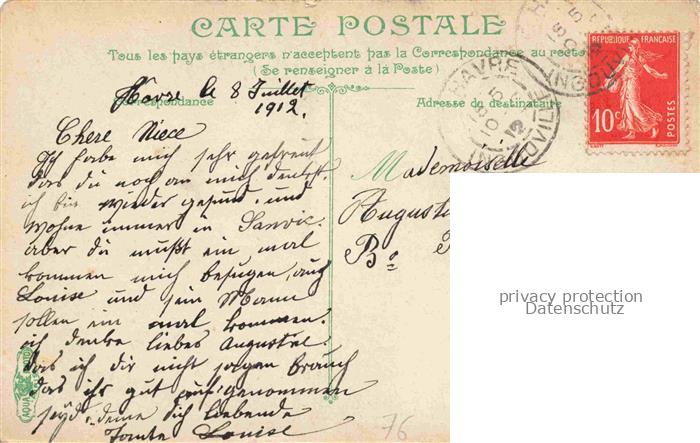 CARTE POSTALE
Tous les pays étrangers n'acceptent pas la Correspondance au recto
(Se renseigner à la Poste)
Havre le 8 Juillet
1912.
Correspondance
Adresse du destinataire
HAVRE
REPUBLIQUE FRANÇAISE
10c
POSTES
Chere Niece
Ich habe mich sehr gefreut
das du noch an mich denkst.
ich bin wieder gesund. und
wohne immer in Sanvic.
aber du mußt ein mal
kommen mich besugen, auch
Louise und sein Mann
sollen ein mal kommen.
ich denke liebes Augustel.
das ich dir nicht sagen brauch
das ihr gut aufgenommen
seyd. deine dich liebende
Tante Louise
Mademoiselle
August
Bo
privacy protection
Datenschutz
76